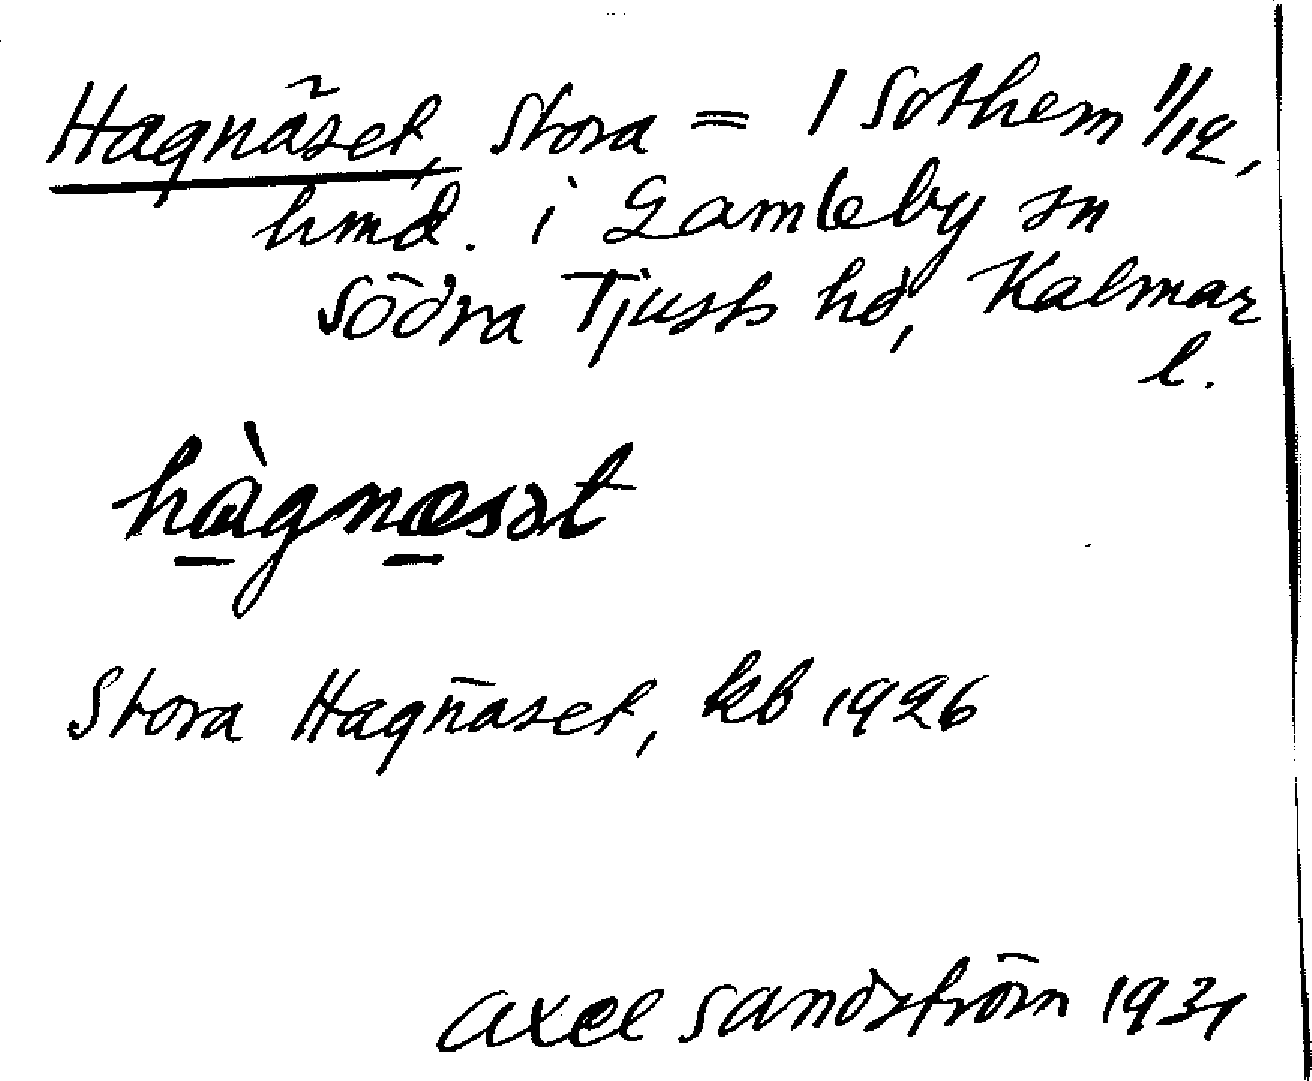 Hagnäset, Stora = 1 Sothem 1/12,
hmd. i Gamleby sn
Södra Tjusts hd, Kalmar
l.
hàgnæsət
Stora Hagnäset, kb 1926
Axel Sandström 1931